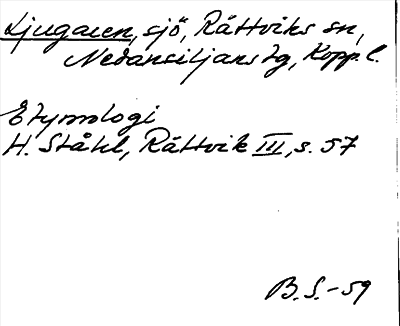 Ljugaren, sjö, Rättviks sn,
Nedansiljans tg, Kopp. l.
Etymologi
H. Ståhl, Rättvik III, s. 57
B. S. -59